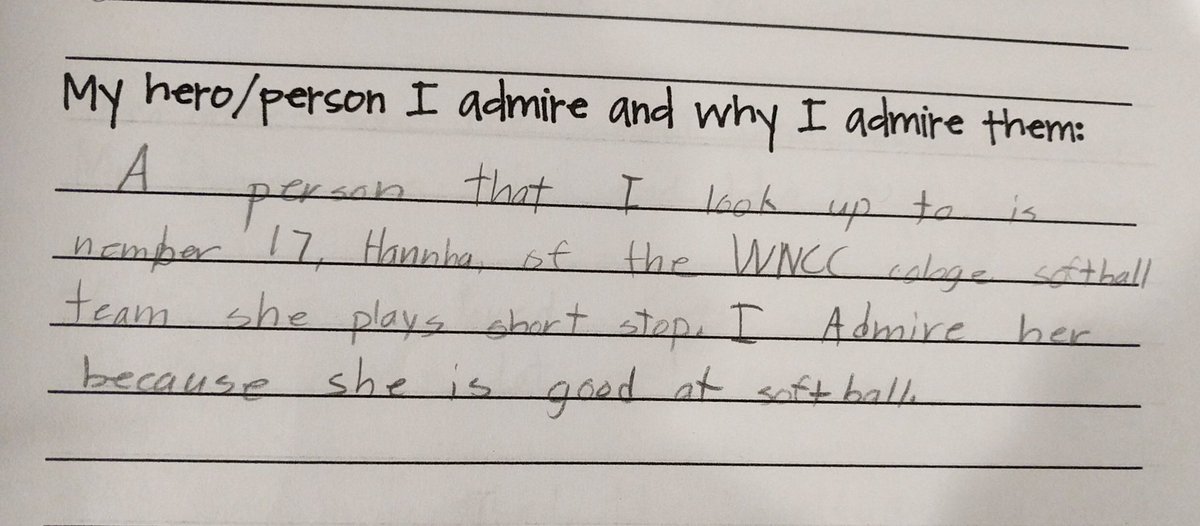 My hero/person I admire and why I admire them:
A person that I look up to is
nomber 17, Hannha, of the WNCC colage softball
team she plays short stop. I Admire her
because she is good at soft ball.